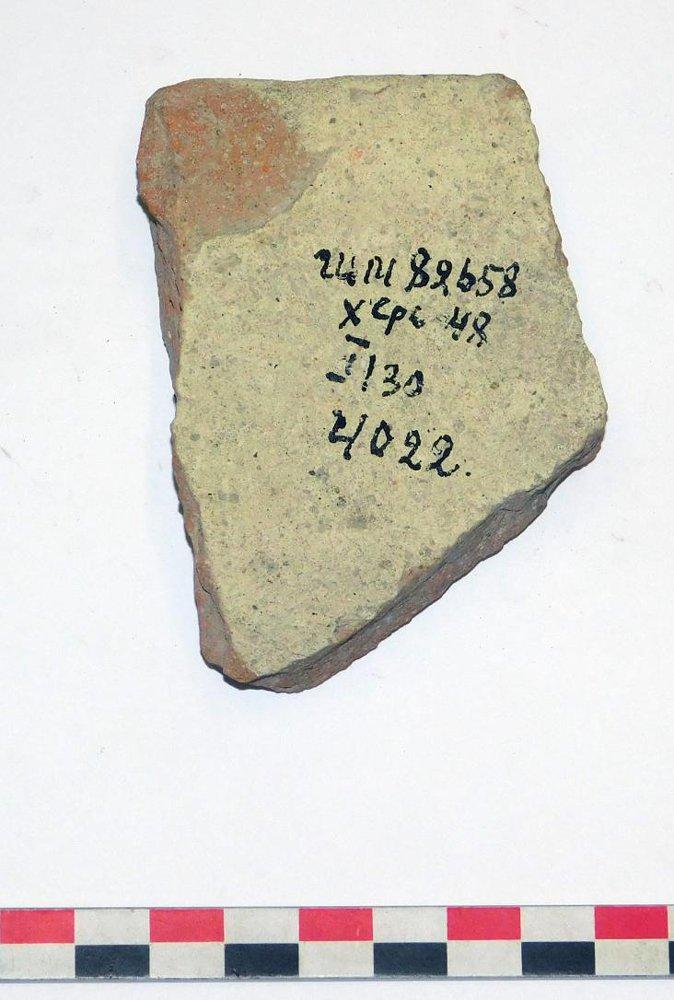 ГИМ 82658
Херс 48
II 130
4022.